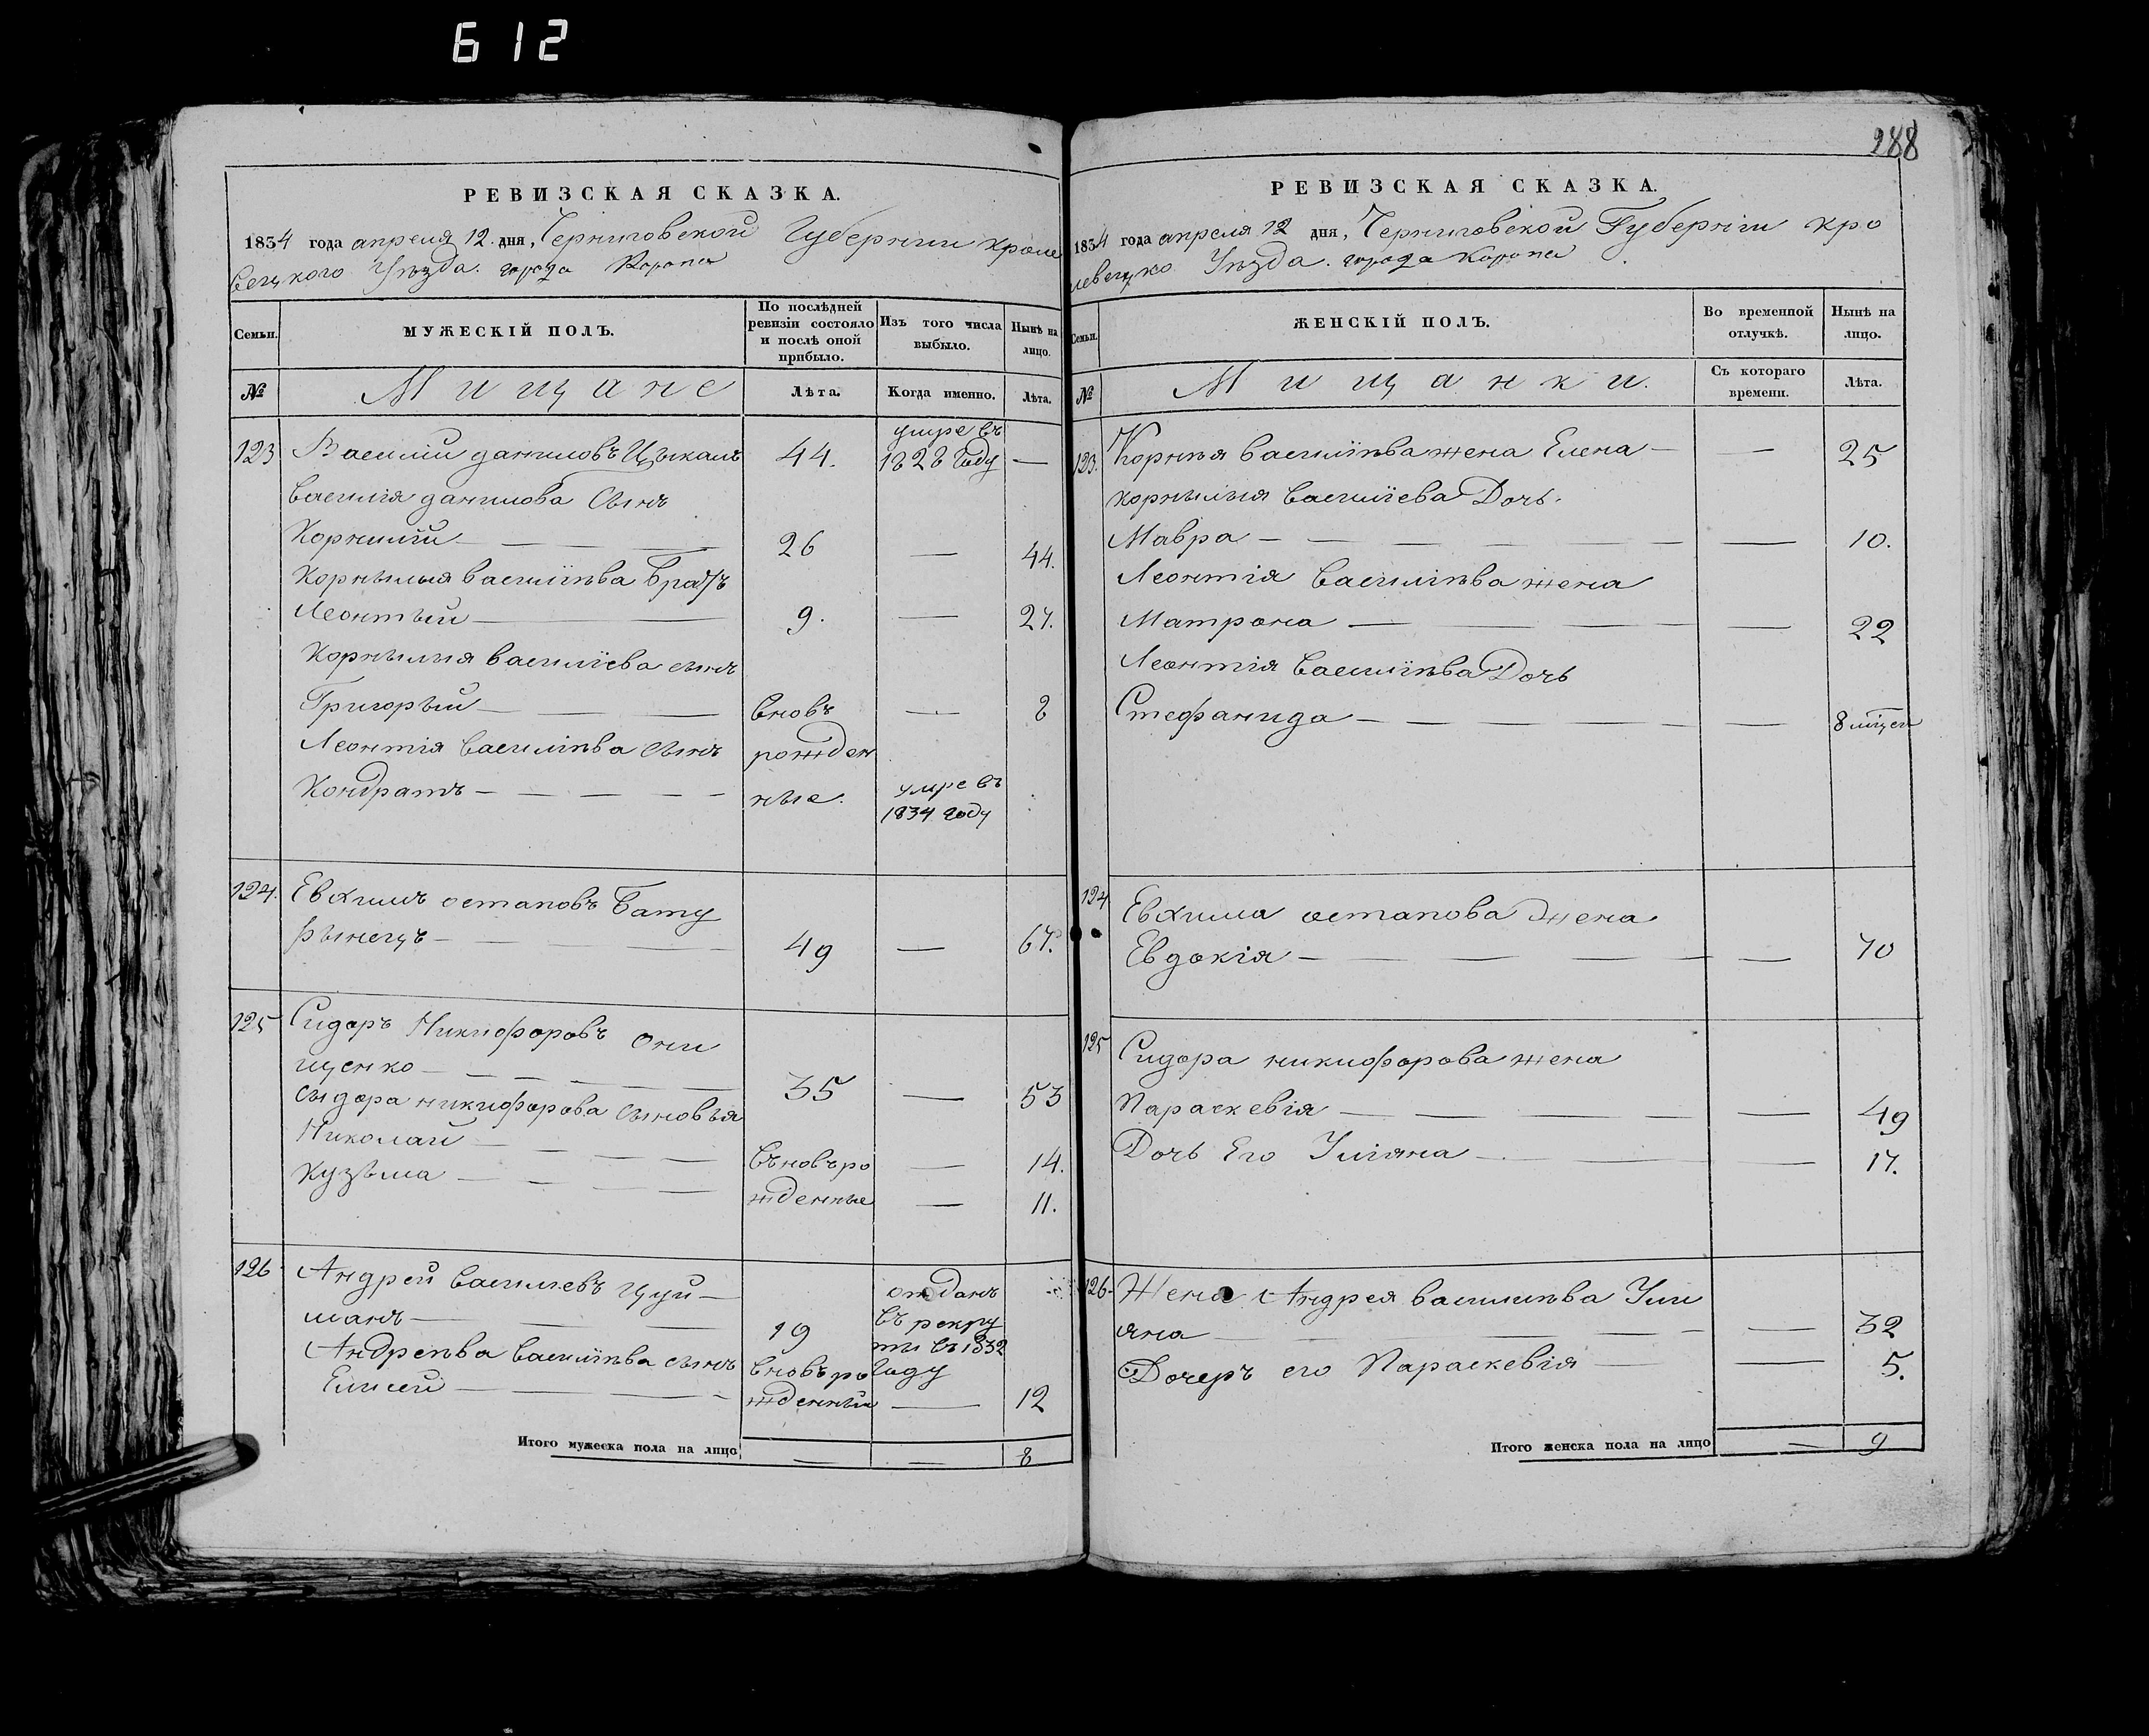 612
288
РЕВИЗСКАЯ СКАЗКА.
1834 года апреля 12. дня, Черниговской Губернии кроле
вецкого Уѣзда. города Коропа
Семьи.
МУЖЕСКІЙ ПОЛЪ.
По послѣдней
ревизіи состояло
и послѣ оной
прибыло.
Изъ того числа
выбыло.
Нынѣ на
лицо.
№
Мищане
Лѣта.
Когда именно.
Лѣта.
123 Василий даниловъ Цыкалъ 44. умре въ 1828 году —
Василія данилова Сынъ
Корнилий — 26 — 44.
Корнилия василіѣва братъ
Леонтѣй — 9. — 27.
Корнилия василіева сынъ
Григорѣй — вновъ — 8
Леонтія василіѣва сынъ рожден
Кондратъ — ные. умре въ
1834 году
124. Евхимъ остаповъ Бату
рынецъ — 49 — 67.
125 Сидоръ Никифоровъ Они
щенко — 35 — 53
Сидора никифорова сыновья
Николай — въновъро — 14.
Кузѣма — жденные — 11.
126 Андрей василевъ цуй —
манъ — 19 отданъ
въ рекру
ты въ 1832
Андреѣва василіѣва сынъ вновъро году
Елисей — жденный — 12
Итого мужеска пола на лицо — — 8
РЕВИЗСКАЯ СКАЗКА.
1834 года апреля 12 дня, Черниговской Губерніи кро
левецко Уѣзда. города Коропа
Семьи.
ЖЕНСКІЙ ПОЛЪ.
Во временной
отлучкѣ.
Нынѣ на
лицо.
№
Мищанки.
Съ котораго
времени.
Лѣта.
123. Корнѣя василіѣва жена Елена — — 25
корнилия василіева Дочь.
Мавра — — 10.
Леонтія василіѣва жена
Матрона — — 22
Леонтія василіѣва Дочь
Стефанида — — 8 міцей
124 Евхима остапова жена
Евдокія — — 70
125 Сидора никифорова жена
Параскевія — — 49
Дочь Его Уліяна — — 17.
126. Жена Андрея василиѣва Ули
яна — — 32
Дочеръ его Параскевія — — 5.
Итого женска пола на лицо — 9